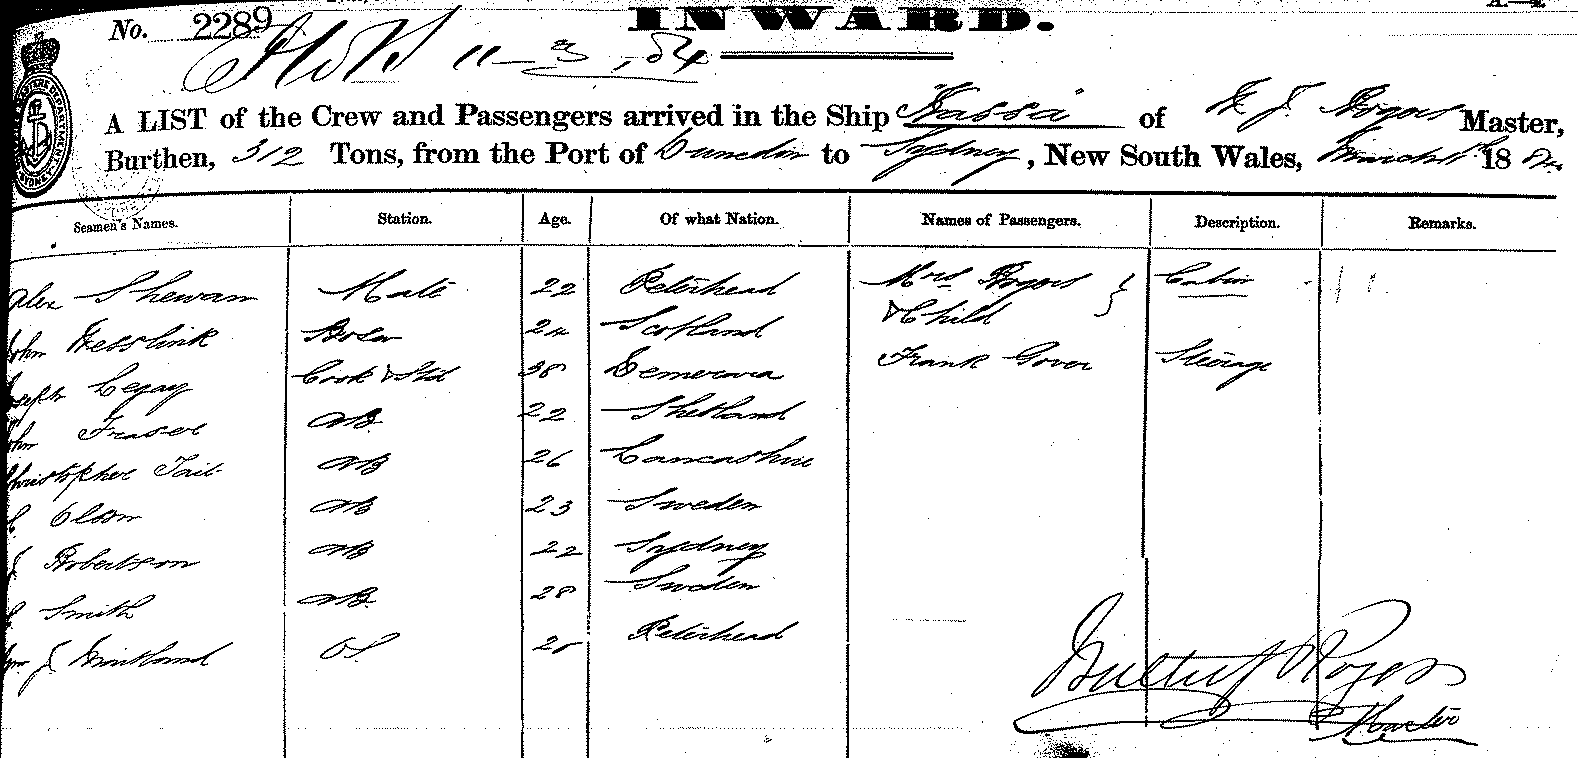 No. 2289
INWARD.
11-3-84
A LIST of the Crew and Passengers arrived in the Ship Kassa of W J Rogers Master,
Burthen, 312 Tons, from the Port of Dunedin to Sydney, New South Wales, March 1884
Seamen's Names. Station. Age. Of what Nation. Names of Passengers. Description. Remarks.
Alex Shewan Mate 22 Peterhead Mrs Rogers } Cabin
John Wesslink Bosn 24 Scotland & Child
Joseph Legay Cook & Std 38 Demerara Frank Gover Steerage
John Fraser AB 22 Shetland
Christopher Tait AB 26 Lancashire
Olson AB 23 Sweden
J Robertson AB 22 Sydney
Smith AB 28 Sweden
Wm J OS 20 Peterhead
Walter J Rogers
Master